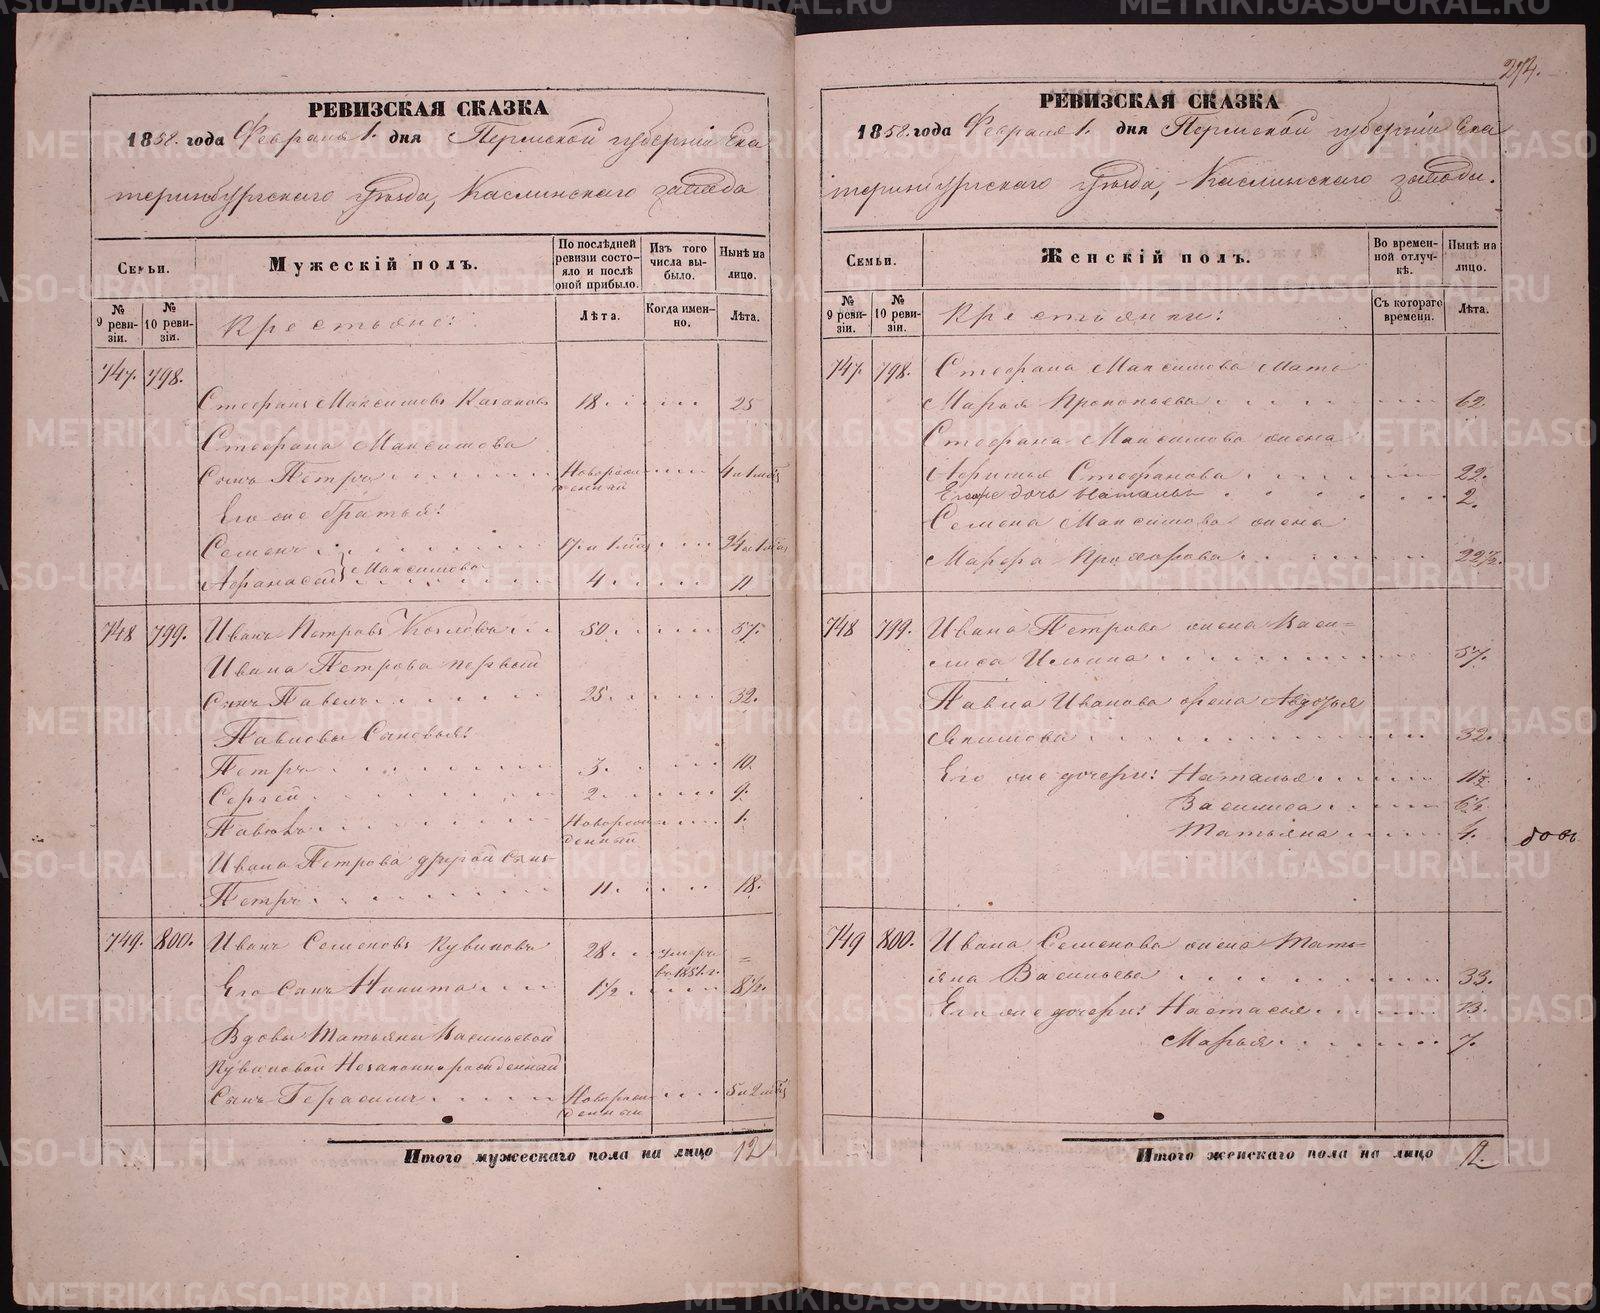 294.
РЕВИЗСКАЯ СКАЗКА
1858. года Февраля 1. дня Пермской губерніи Ека
теринбургскаго уѣзда, Каслинскаго завода
Семьи.
Мужескій полъ.
По послѣдней ревизіи состояло и послѣ оной прибыло.
Изъ того числа выбыло.
Нынѣ на лицо.
№ 9 ревизіи.
№ 10 ревизіи.
Крестьяне:
Лѣта.
Когда именно.
Лѣта.
747. 798.
Стефанъ Максимовъ Казаковъ 18. 25
Стефана Максимова
Сынъ Петръ Новорожденный 4 и 1 мѣс
Его же братья:
Семенъ 17 и 1 мѣс 24 и 1 мѣс
Афанасій Максимовы 4 11
748 799. Иванъ Петровъ Козловъ 50 57.
Ивана Петрова первый
Сынъ Павелъ 25 32.
Павловы Сыновья:
Петръ 3. 10.
Сергѣй 2 9.
Павелъ Новорожденный 1.
Ивана Петрова другой Сынъ
Петръ 11. 18.
749. 800. Иванъ Семеновъ Кувиновъ 28 умеръ въ 1851. г. =
Его Сынъ Никита 1 1/2 8 1/2.
Вдовы Татьяны Васильевой
Кувиновой Незаконнорожденный
Сынъ Герасимъ Новорожденный 5 и 2 мѣс
Итого мужескаго пола на лицо 12
РЕВИЗСКАЯ СКАЗКА
1858. года Февраля 1. дня Пермской губерніи Ека
теринбургскаго уѣзда, Каслинскаго завода.
Семьи.
Женскій полъ.
Во временной отлучкѣ.
Нынѣ на лицо.
№ 9 ревизіи.
№ 10 ревизіи.
Крестьянки:
Съ котораго времени.
Лѣта.
747. 798. Стефана Максимова Мать
Марья Прокопьева 62.
Стефана Максимова жена
Афимья Стефанова 22.
Его же дочь Наталья 2.
Семена Максимова жена
Марфа Прохорова 22 1/2.
748 799. Ивана Петрова жена Васи=
лиса Ильина 57.
Павла Иванова жена Авдотья
Якимова 32.
Его же дочери: Наталья 11 1/2
Василиса 6 1/2
Татьяна 4.
749 800. Ивана Семенова жена Тать=
яна Васильева 33.
Его же дочери: Настасья 13.
Марья 7.
Итого женскаго пола на лицо 12.
METRIKI.GASO-URAL.RU